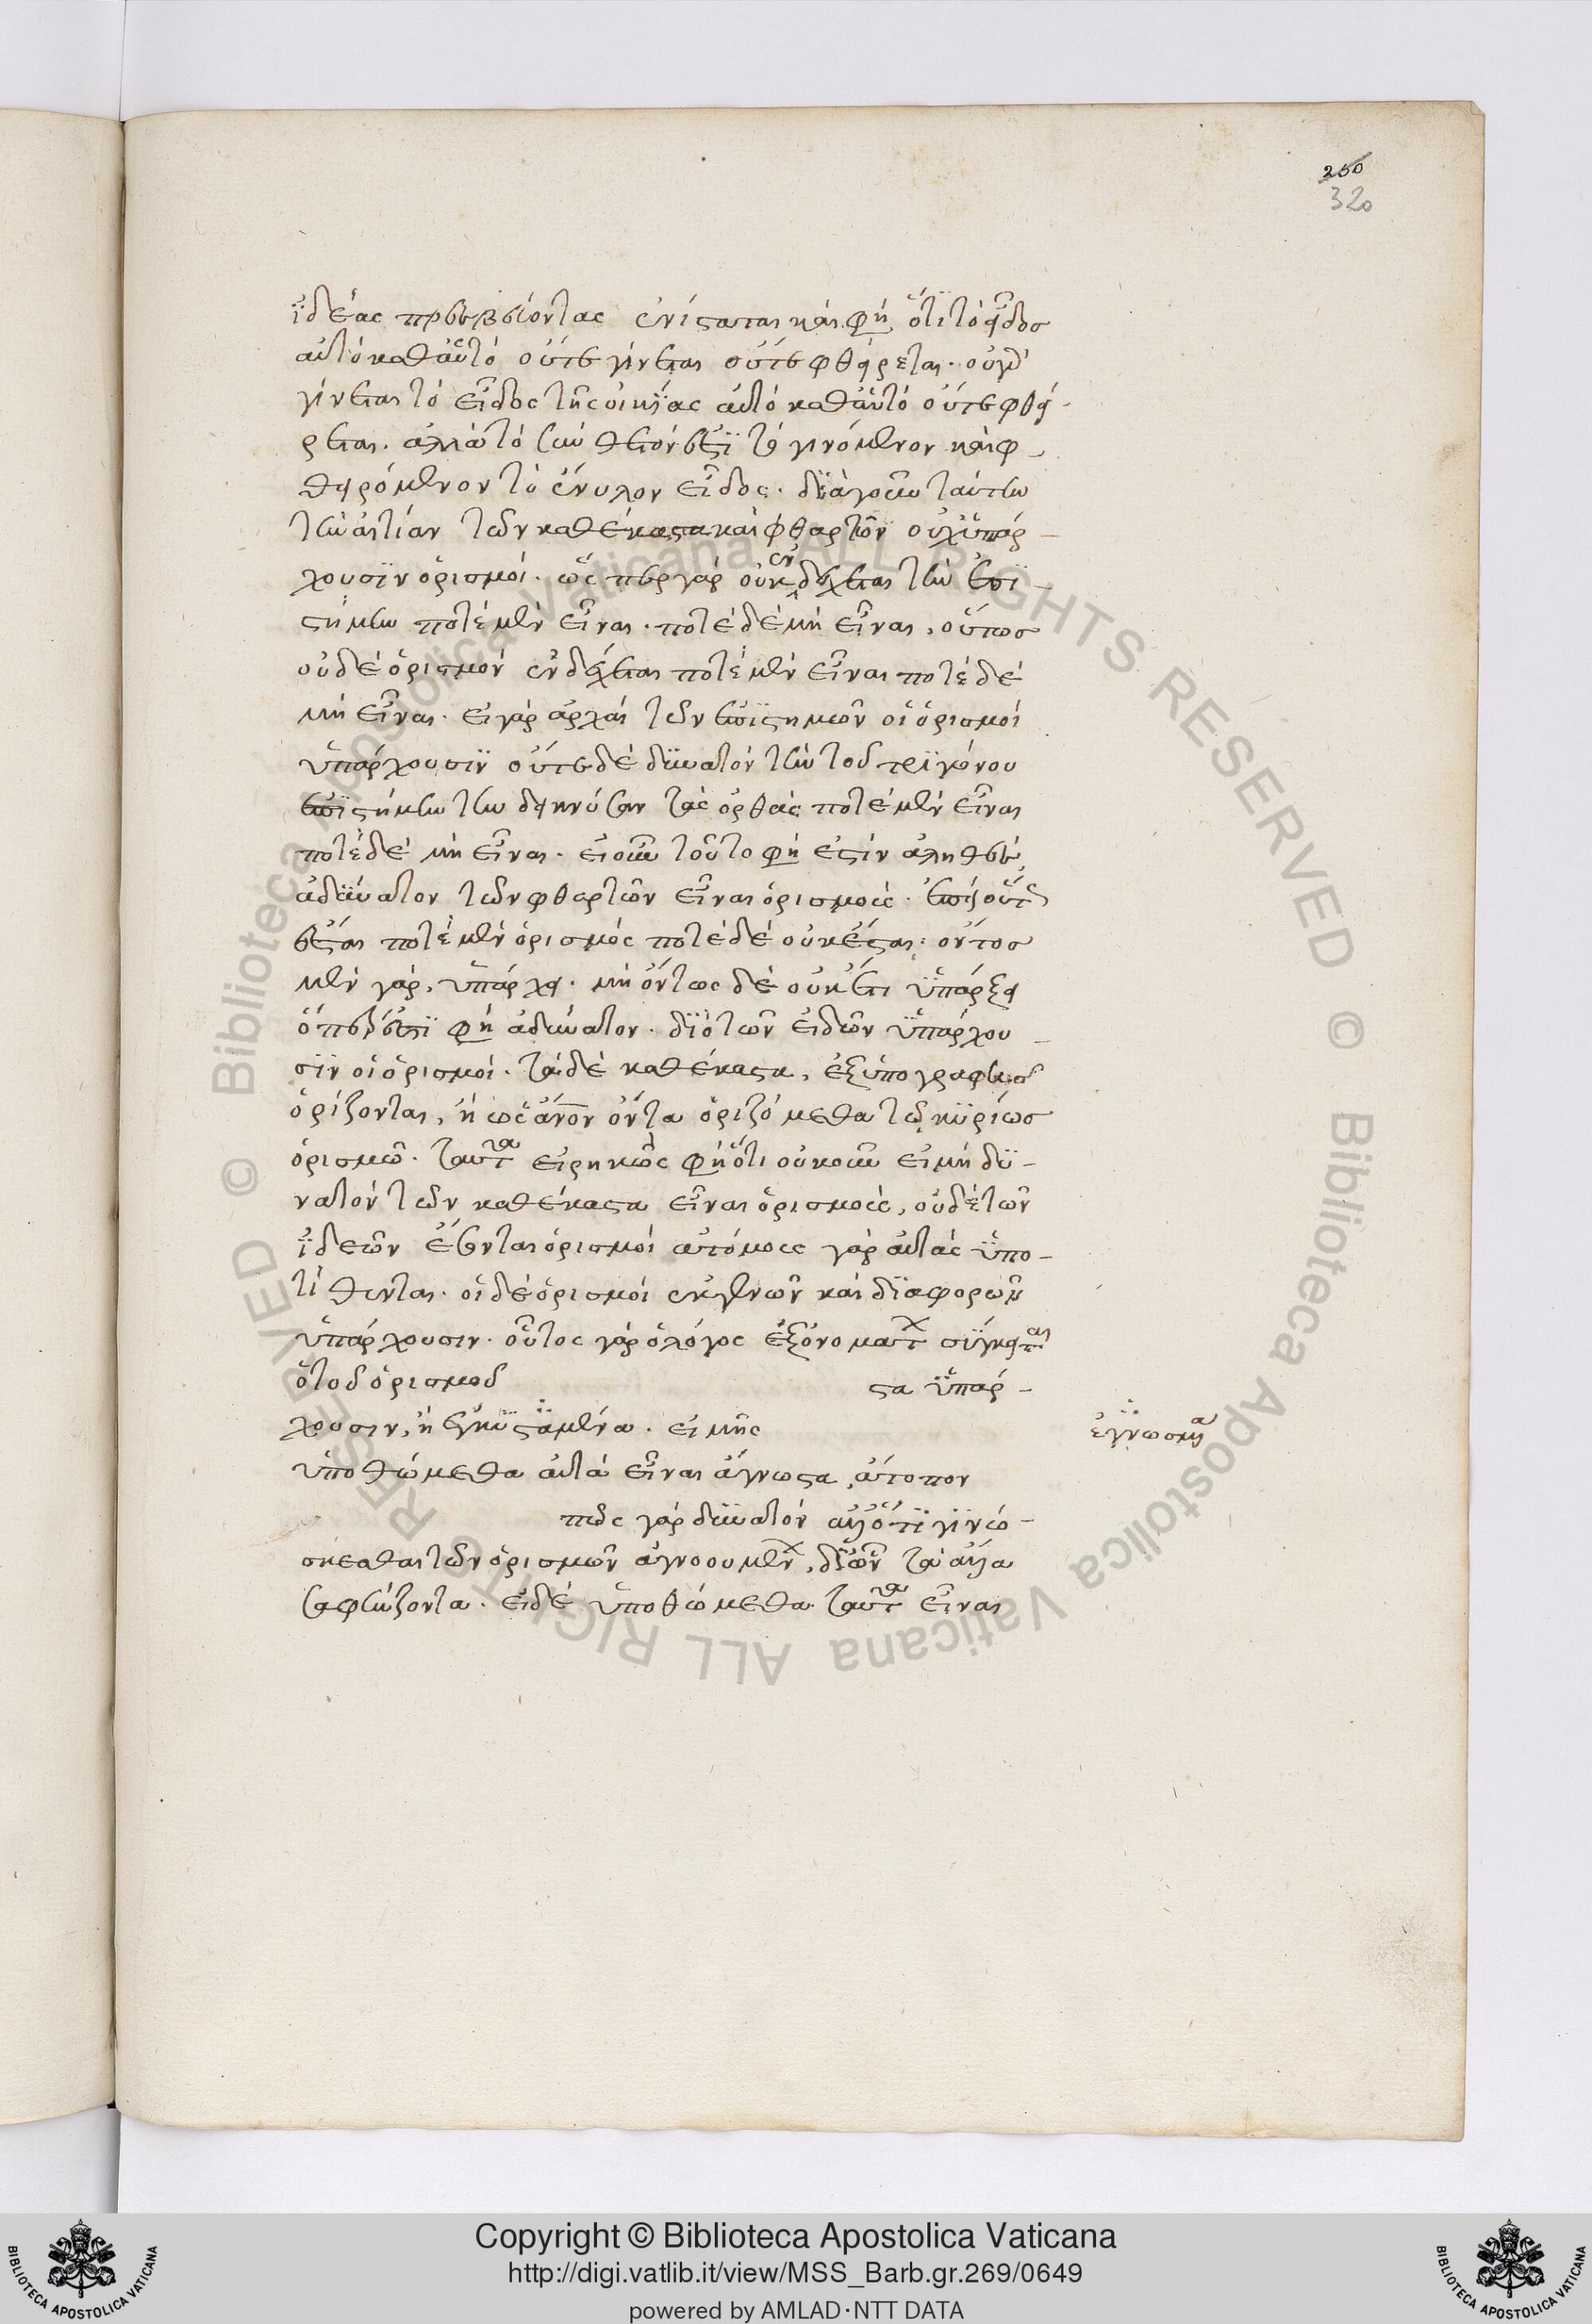 250
320
ἰδέας πρεσβεύοντας ἐνίσταται καί φη ὅτι τὸ εἶδος
αὐτὸ καθ' αὑτὸ οὔτε γίνεται οὔτε φθείρεται. οὐ γὰρ
γίνεται τὸ εἶδος τῆς οἰκίας αὐτὸ καθ' αὑτὸ οὔτε φθεί-
ρεται. ἀλλὰ τὸ συνθετόν ἐστι τὸ γινόμενον καὶ φ-
θειρόμενον τὸ ἔνυλον εἶδος. διὰ γοῦν ταύτην
τὴν αἰτίαν τῶν καθέκαστα καὶ φθαρτῶν οὐχ ὑπάρ-
χουσιν ὁρισμοί. ὥσπερ γὰρ οὐκ ἐνδέχεται τὴν ἐπι-
στήμην ποτὲ μὲν εἶναι. ποτὲ δὲ μὴ εἶναι, οὕτως
οὐδὲ ὁρισμὸν ἐνδέχεται ποτὲ μὲν εἶναι ποτὲ δὲ
μὴ εἶναι. εἰ γὰρ ἀρχαὶ τῶν ἐπιστημῶν οἱ ὁρισμοὶ
ὑπάρχουσιν οὔτε δὲ δυνατὸν τὴν τοῦ τριγώνου
ἐπιστήμην τὴν δεικνύσαν τὰς ὀρθὰς ποτὲ μὲν εἶναι
ποτὲ δὲ μὴ εἶναι. εἰ οὖν τοῦτο φη ἐστὶν ἀληθὲς
ἀδύνατον τῶν φθαρτῶν εἶναι ὁρισμούς. ἐπεὶ οὕτως
ἔσται ποτὲ μὲν ὁρισμὸς ποτὲ δὲ οὐκ ἔσται. ὄντος
μὲν γὰρ, ὑπάρχει. μὴ ὄντως δὲ οὐκ ἔτι ὑπάρξει
ὅπερ ἐστί φη ἀδύνατον. διὸ τῶν εἰδῶν ὑπάρχου-
σιν οἱ ὁρισμοί. τὰ δὲ καθέκαστα, ἐξ ὑπογραφῆς
ὁρίζονται, ἢ ὡς ἄνον ὄντα ὁριζόμεθα τῷ κυρίως
ὁρισμῷ. ταῦτα εἰρηκώς φη ὅτι οὐκοῦν εἰ μὴ δυ-
νατὸν τῶν καθέκαστα εἶναι ὁρισμούς, οὐδὲ τῶν
ἰδεῶν ἔσονται ὁρισμοὶ ἀτόμους γὰρ αὐτὰς ὑπο-
τίθενται. οἱ δὲ ὁρισμοὶ ἐκ γενῶν καὶ διαφορῶν
ὑπάρχουσιν. οὗτος γὰρ ὁ λόγος ἐξ ὀνομάτων σύγκειται
ὁ τοῦ ὁρισμοῦ στα ὑπάρ-
χουσιν, ἢ ἐγνωσταμένα. εἰ μὴς
ἐγνωσμένα
ὑποθώμεθα αὐτὰ εἶναι ἄγνωστα, ἄτοπον
πῶς γὰρ δυνατὸν ἄλλο τι γινώ-
σκεσθαι τῶν ὁρισμῶν ἀγνοουμένων, δι' ὧν τὰ ἄλλα
σαφηνίζονται. εἰ δὲ ὑποθώμεθα ταῦτα εἶναι
Copyright © Biblioteca Apostolica Vaticana
http://digi.vatlib.it/view/MSS_Barb.gr.269/0649
powered by AMLAD·NTT DATA
BIBLIOTECA APOSTOLICA VATICANA
BIBLIOTECA APOSTOLICA VATICANA
© Biblioteca Apostolica Vaticana ALL RIGHTS RESERVED
© Biblioteca Apostolica Vaticana ALL RIGHTS RESERVED